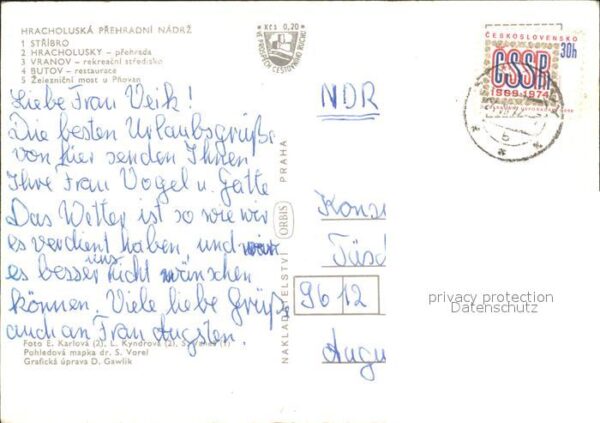 HRACHOLUSKÁ PŘEHRADNÍ NÁDRŽ
1 STŘÍBRO
2 HRACHOLUSKY – přehrada
3 VRANOV – rekreační středisko
4 BUTOV – restaurace
5 Železniční most u Pňovan
Liebe Frau Veik!
Die besten Urlaubsgrüße
von hier senden Ihnen
Ihre Frau Vogel u. Gatte
Das Wetter ist so wie wir
es verdient haben, und
es besser uns nicht wünschen
können. Viele liebe Grüße
auch an Frau Augsten.
Foto E. Karlová (2), L. Kyndrová (2), S. (1)
Pohledová mapka dr. S. Vorel
Grafická úprava D. Gawlik
Kčs 0,20
NAKLADATELSTVÍ ORBIS PRAHA
ČESKOSLOVENSKO
30h
ČSSR
1969-1974
NDR
Konsu
Tüsd
9612
Augu
privacy protection
Datenschutz